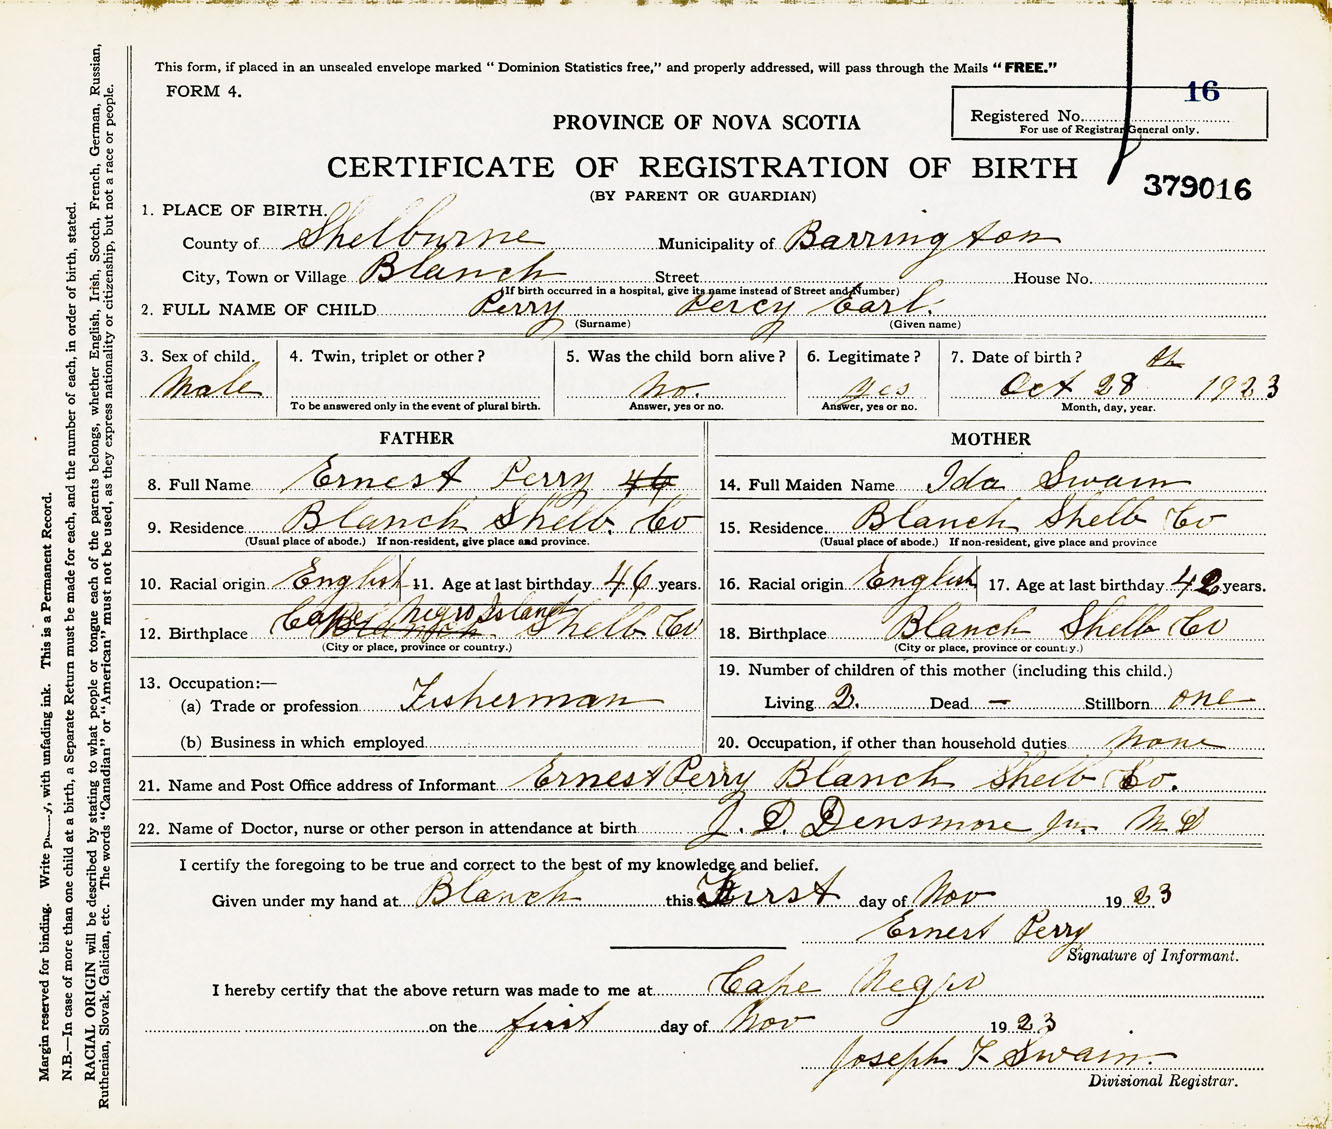 This form, if placed in an unsealed envelope marked " Dominion Statistics free," and properly addressed, will pass through the Mails " FREE."
FORM 4.
16
Registered No.
For use of Registrar General only.
PROVINCE OF NOVA SCOTIA
CERTIFICATE OF REGISTRATION OF BIRTH
379016
(BY PARENT OR GUARDIAN)
1. PLACE OF BIRTH.
County of Shelburne Municipality of Barrington
City, Town or Village Blanch Street House No.
(If birth occurred in a hospital, give its name instead of Street and Number)
2. FULL NAME OF CHILD Perry Percy Earl.
(Surname) (Given name)
3. Sex of child. 4. Twin, triplet or other ? 5. Was the child born alive ? 6. Legitimate ? 7. Date of birth ?
Male No. yes Oct 28th 1923
To be answered only in the event of plural birth. Answer, yes or no. Answer, yes or no. Month, day, year.
FATHER MOTHER
8. Full Name Ernest Perry 46 14. Full Maiden Name Ida Swain
9. Residence Blanch Shelb. Co 15. Residence Blanch Shelb Co
(Usual place of abode.) If non-resident, give place and province. (Usual place of abode.) If non-resident, give place and province
10. Racial origin English 11. Age at last birthday 46 years. 16. Racial origin English 17. Age at last birthday 42 years.
Cape Negro Island
12. Birthplace Blanch Shelb Co 18. Birthplace Blanch Shelb Co
(City or place, province or country.) (City or place, province or country.)
13. Occupation:— 19. Number of children of this mother (including this child.)
(a) Trade or profession Fisherman Living 2. Dead — Stillborn one
(b) Business in which employed 20. Occupation, if other than household duties None
21. Name and Post Office address of Informant Ernest Perry Blanch Shelb Co.
22. Name of Doctor, nurse or other person in attendance at birth J. D. Densmore Jr. M D
I certify the foregoing to be true and correct to the best of my knowledge and belief.
Given under my hand at Blanch this First day of Nov 1923
Ernest Perry
Signature of Informant.
I hereby certify that the above return was made to me at Cape Negro
on the first day of Nov 1923
Joseph F. Swain.
Divisional Registrar.
Margin reserved for binding. Write with unfading ink. This is a Permanent Record.
N.B.—In case of more than one child at a birth, a Separate Return must be made for each, and the number of each, in order of birth, stated.
RACIAL ORIGIN will be described by stating to what people or tongue each of the parents belongs, whether English, Irish, Scotch, French, German, Russian,
Ruthenian, Slovak, Galician, etc. The words "Canadian" or "American" must not be used, as they express nationality or citizenship, but not a race or people.